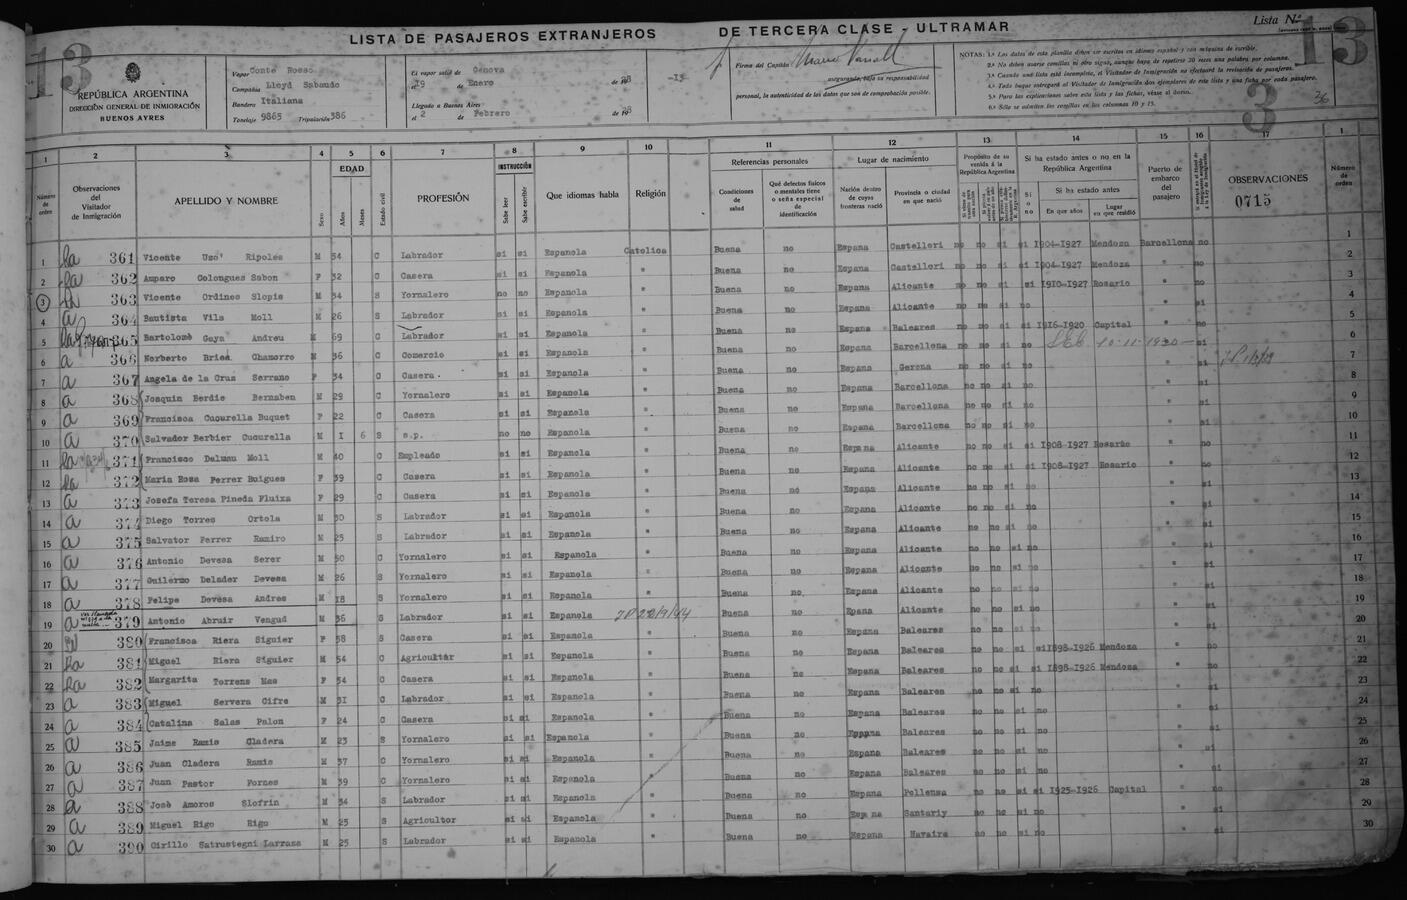 LISTA DE PASAJEROS EXTRANJEROS DE TERCERA CLASE - ULTRAMAR
Lista N.º 13
13
REPÚBLICA ARGENTINA
DIRECCIÓN GENERAL DE INMIGRACIÓN
BUENOS AIRES
Vapor Conte Rosso
Compañia Lloyd Sabaudo
Bandera Italiana
Tonelaje 9865 Tripulación 386
El vapor salió de Genova
el 19 de Enero de 1928
Llegado a Buenos Aires
el 2 de Febrero de 1928
-13
Firma del Capitán
asegurando, bajo su responsabilidad
personal, la autenticidad de los datos que son de comprobación posible.
NOTAS: 1.ª Los datos de esta planilla deben ser escritos en idioma español y con máquina de escribir.
2.ª No deben usarse comillas ni otro signo, aunque haya de repetirse 30 veces una palabra por columna.
3.ª Cuando una lista esté incompleta, el Visitador de Inmigración no efectuará la revisación de pasajeros.
4.ª Todo buque entregará al Visitador de Inmigración dos ejemplares de esta lista y una ficha por cada pasajero.
5.ª Para las explicaciones sobre esta lista y las fichas, véase al dorso.
6.ª Sólo se admiten las comillas en las columnas 10 y 15.
3
36
1 2 3 4 5 6 7 8 9 10 11 12 13 14 15 16 17 1
Número de orden
Observaciones del Visitador de Inmigración
APELLIDO Y NOMBRE
Sexo
EDAD
Años
Meses
Estado civil
PROFESIÓN
INSTRUCCIÓN
Sabe leer
Sabe escribir
Que idiomas habla
Religión
Referencias personales
Condiciones de salud
Qué defectos físicos o mentales tiene o seña especial de identificación
Lugar de nacimiento
Nación dentro de cuyas fronteras nació
Provincia o ciudad en que nació
Propósito de su venida á la República Argentina
Si ha estado antes o no en la República Argentina
Sí o no
Si ha estado antes
En que años
Lugar en que residió
Puerto de embarco del pasajero
OBSERVACIONES
0715
Número de orden
1 361 Vicente Uso' Ripoles M 54 C Labrador si si Espanola Catolica Buena no Espana Castelleri no no si si 1904-1927 Mendoza Barcellona no 1
2 362 Amparo Colongues Sabon F 52 C Casera si si Espanola " Buena no Espana Castelleri no no si si 1904-1927 Mendoza " no 2
3 363 Vicente Ordines Slopis M 34 S Yornalero no no Espanola " Buena no Espana Alicante no no si si 1910-1927 Rosario " no 3
4 a 364 Bautista Vila Moll M 26 S Labrador si si Espanola " Buena no Espana Alicante no no si no " si 4
5 365 Bartolomè Gaya Andreu M 69 C Labrador si si Espanola " Buena no Espana Baleares no no si si 1916-1920 Capital " no 5
10-11-1930
6 a 366 Norberto Briea Chamorro M 36 C Comercio si si Espanola " Buena no Espana Barcellona no no si no " si 6
7 a 367 Angela de la Cruz Serrano F 34 C Casera si si Espanola " Buena no Espana Gerona no no si no " si 7
8 a 368 Joaquin Berdie Bernaben M 29 C Yornalero si si Espanola " Buena no Espana Barcellona no no si no " si 8
9 a 369 Francisca Cucurella Buquet F 22 C Casera si si Espanola " Buena no Espana Barcellona no no si no " si 9
10 a 370 Salvador Berbier Cucurella M I 6 S s.p. no no Espanola " Buena no Espana Barcellona no no si no " si 10
11 371 Francisco Dalmau Moll M 40 C Empleado si si Espanola " Buena no Espana Alicante no no si si 1908-1927 Rosario " no 11
12 372 Maria Rosa Ferrer Buigues F 39 C Casera si si Espanola " Buena no Espana Alicante no no si si 1908-1927 Rosario " no 12
13 a 373 Josefa Teresa Pineda Fluixa F 29 C Casera si si Espanola " Buena no Espana Alicante no no si no " si 13
14 a 374 Diego Torres Ortola M 30 S Labrador si si Espanola " Buena no Espana Alicante no no si no " si 14
15 a 375 Salvator Ferrer Ramiro M 25 S Labrador si si Espanola " Buena no Espana Alicante no no si no " si 15
16 a 376 Antonio Devesa Serer M 50 C Yornalero si si Espanola " Buena no Espana Alicante no no si no " si 16
17 a 377 Guilermo Delader Devesa M 26 S Yornalero si si Espanola " Buena no Espana Alicante no no si no " si 17
18 a 378 Felipe Devesa Andres M 18 S Yornalero si si Espanola " Buena no Espana Alicante no no si no " si 18
19 a 379 Antonio Abruir Vengud M 36 S Labrador si si Espanola 22/9/44 Buena no Epana Alicante no no si no " si 19
20 380 Francisca Riera Siguier F 58 S Casera si si Espanola " Buena no Espana Baleares no no si no " si 20
21 381 Miguel Riera Siguier M 54 C Agricultàr si si Espanola " Buena no Espana Baleares no no si si 1898-1926 Mendoza " no 21
22 382 Margarita Torrens Mas F 54 C Casera si si Espanola " Buena no Espana Baleares no no si si 1898-1926 Mendoza " no 22
23 a 383 Miguel Servera Cifre M 31 C Labrador si si Espanola " Buena no Espana Baleares no no si no " si 23
24 a 384 Catalina Salas Palon F 24 C Casera si si Espanola " Buena no Espana Baleares no no si no " si 24
25 a 385 Jaime Ramis Cladera M 23 S Yornalero si si Espanola " Buena no Espana Baleares no no si no " si 25
26 a 386 Juan Cladera Ramis M 37 C Yornalero si si Espanola " Buena no Espana Baleares no no si no " si 26
27 a 387 Juan Pastor Fornes M 39 C Yornalero si si Espanola " Buena no Espana Baleares no no si no " si 27
28 a 388 Josè Amoros Slofrin M 34 S Labrador si si Espanola " Buena no Espana Pollensa no no si si 1925-1926 Capital " no 28
29 a 389 Miguel Rigo Rigo M 25 S Agricultor si si Espanola " Buena no Espana Santariy no no si no " si 29
30 a 390 Cirillo Satrustegni Larrasa M 25 S Labrador si si Espanola " Buena no Espana Navaira no no si no " si 30